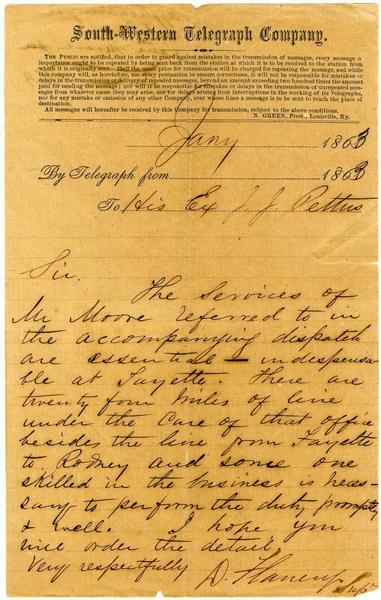 South-Western Telegraph Company.
THE PUBLIC are notified, that in order to guard against mistakes in the transmission of messages, every message of
importance ought to be repeated by being sent back from the station at which it is to be received to the station from
which it is originally sent. Half the usual price for transmission will be charged for repeating the message, and while
this company will, as heretofore, use every precaution to ensure correctness, it will not be responsible for mistakes or
delays in the transmission or delivery of repeated messages, beyond an amount exceeding two hundred times the amount
paid for sending the message; nor will it be responsible for mistakes or delays in the transmission of unrepeated messages
from whatever cause they may arise, nor for delays arising from interruptions in the working of its Telegraphs,
nor for any mistake or omission of any other Company, over whose lines a message is to be sent to reach the place of
destination.
All messages will hereafter be received by this Company for transmission, subject to the above conditions.
N. GREEN, Prest., Louisville, Ky.
Jany 1863
By Telegraph from 1863
To His Ex J. J. Pettus
Sir.
The Services of
Mr Moore referred to in
the accompanying dispatch
are essential — indespensa
ble at Fayette. There are
twenty four miles of line
under the care of that office
besides the line from Fayette
to Rodney and some one
skilled in the business is neces
sary to perform the duty promptly
& well. I hope you
will order the detail
Very respectfully
D. Flanery Supt